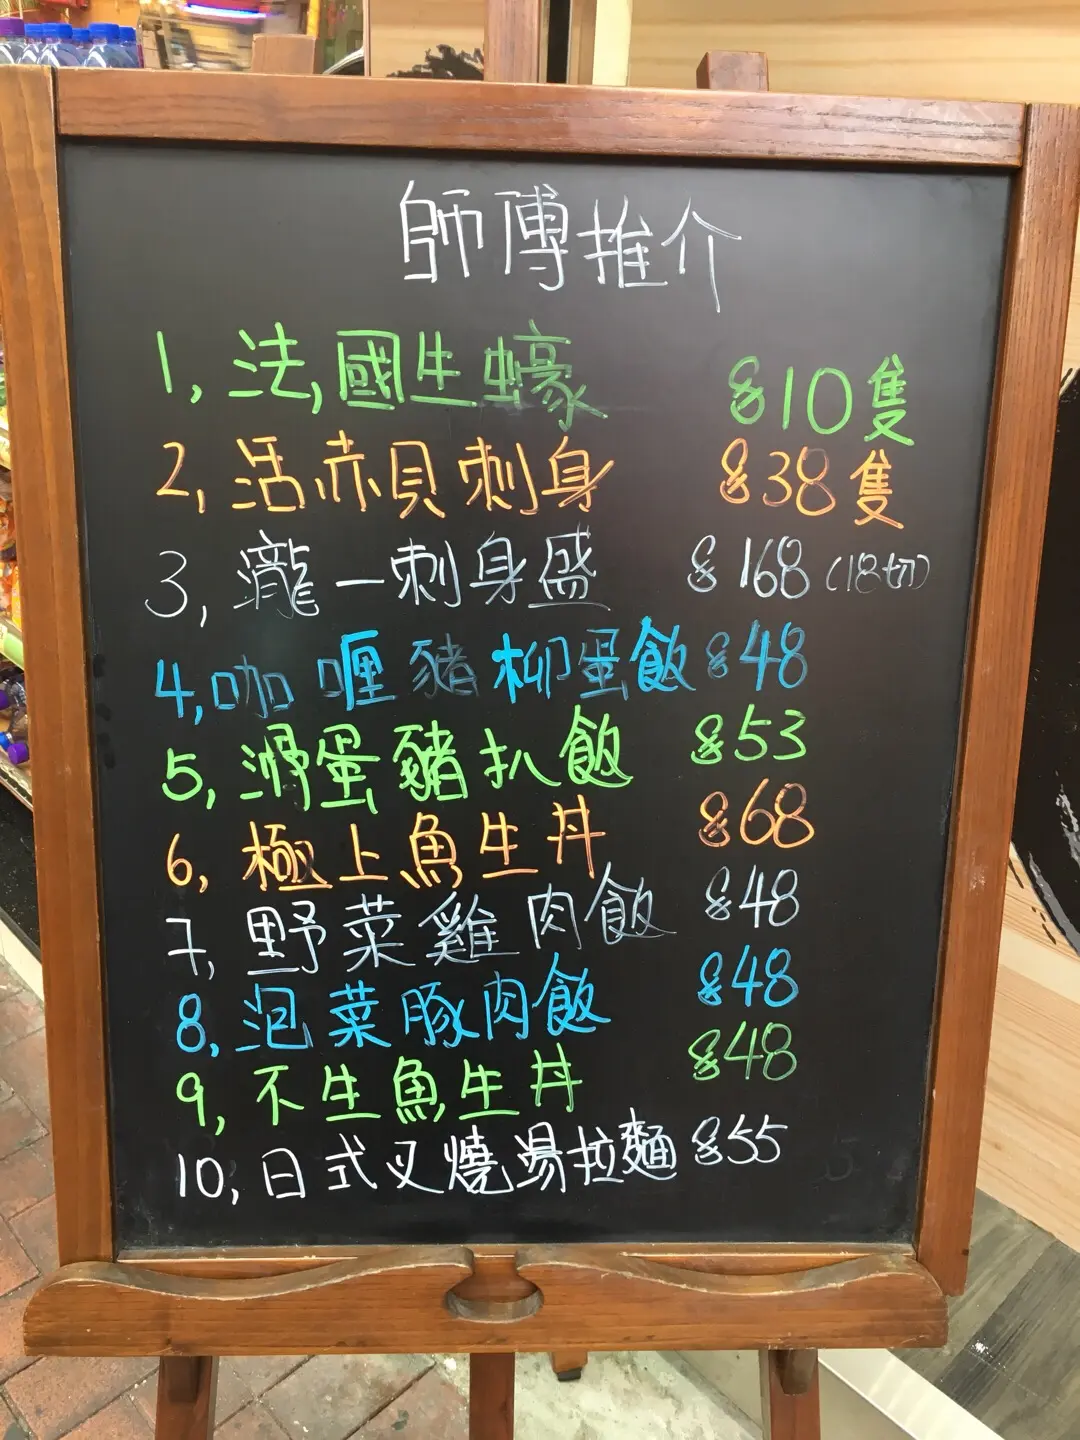 師傅推介
1, 法國生蠔 $10隻
2, 活赤貝刺身 $38隻
3, 瀧一刺身盛 $168 (18切)
4, 咖喱豬柳蛋飯 $48
5, 滑蛋豬扒飯 $53
6, 極上魚生丼 $68
7, 野菜雞肉飯 $48
8, 泡菜豚肉飯 $48
9, 不生魚生丼 $48
10, 日式叉燒湯拉麵 $55